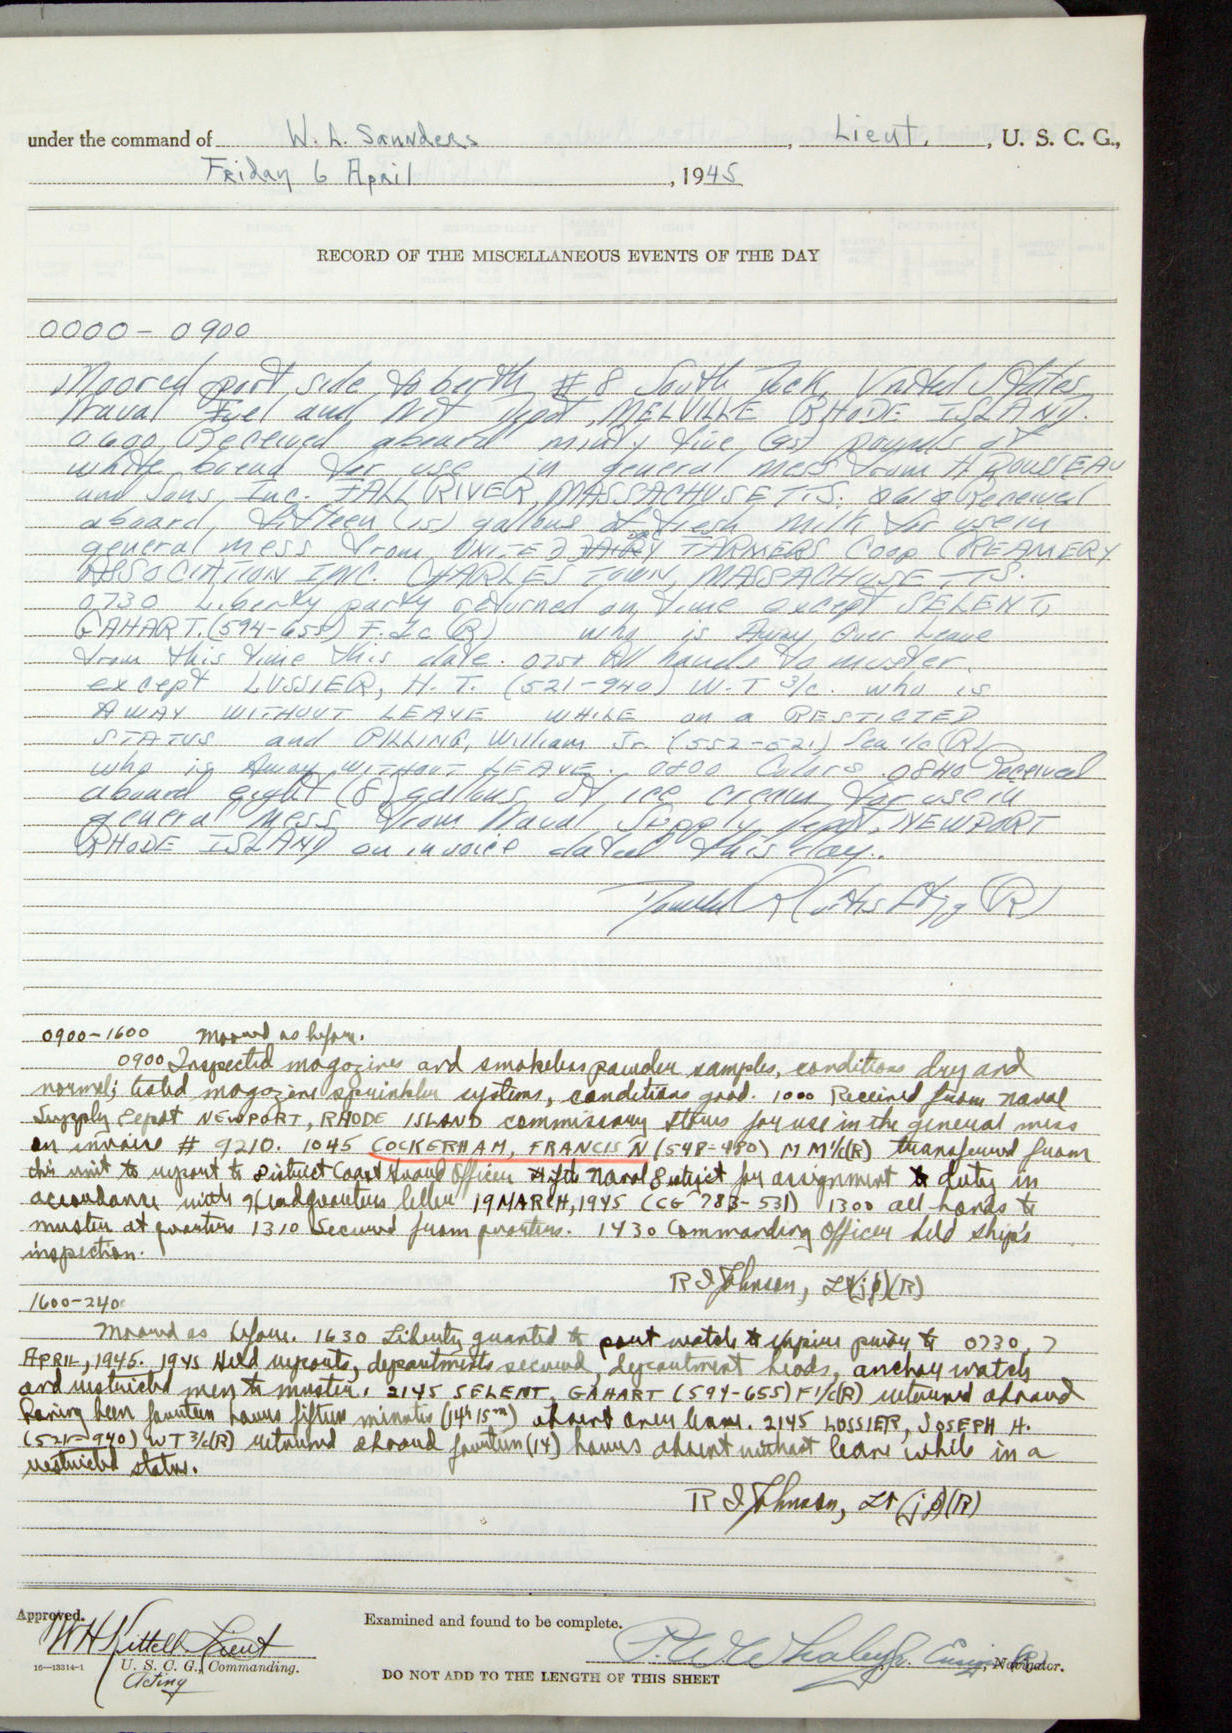 under the command of W. L. Saunders, Lieut., U. S. C. G.,
Friday 6 April, 1945
RECORD OF THE MISCELLANEOUS EVENTS OF THE DAY
0000 - 0900
Moored port side to berth # 8 South Dock, United States
Naval Fuel and Net Depot, MELVILLE RHODE ISLAND.
0600 Received aboard ninty five (95) pounds of
white bread for use in general mess from H. ROUSSEAU
and Sons, Inc. FALL RIVER, MASSACHUSETTS. 0610 Received
aboard, fifteen (15) gallons of fresh milk for use in
general mess from UNITED FARMERS Coop CREAMERY
ASSOCIATION INC. CHARLES TOWN, MASSACHUSETTS.
0730 Liberty party returned on time except SELENT,
GAHART (594-655) F.1c (R) who is Away Over Leave
from this time this date. All hands to muster.
except LUSSIER, H. T. (521-940) W.T 3/c. who is
AWAY WITHOUT LEAVE WHILE on a RESTICTED
STATUS and PILLING, William Jr. (552-521) Sea 1/c (R)
who is Away WITHOUT LEAVE. 0800 Colors. 0840 Received
aboard eight (8) gallons of ice cream for use in
general mess from Naval Supply Depot, NEWPORT
RHODE ISLAND on invoice dated this day.
Ltjg (R)
0900-1600 Moored as before.
0900 Inspected magazines and smokeless powder samples, conditions dry and
normal; tested magazine sprinkler systems, conditions good. 1000 Received from Naval
Supply Depot NEWPORT, RHODE ISLAND commissary stores for use in the general mess
on invoice # 9210. 1045 COCKERHAM, FRANCIS N (548-480) M M 1/c(R) transferred from
this unit to report to District Coast Guard Officer Fifth Naval District for assignment to duty in
accordance with Headquarters letter 19 MARCH, 1945 (CG 783-531) 1300 all hands to
muster at quarters 1310 Secured from quarters. 1430 Commanding Officer held ship's
inspection.
R I Johnson, Lt(jg)(R)
1600-240
Moored as before. 1630 Liberty granted to port watch to expire prior to 0730, 7
APRIL, 1945. 1945 Held reports, departments secured, department heads, anchor watch
and restricted men to muster. 2145 SELENT, GAHART (594-655) F1/c(R) returned aboard
having been fourteen hours fifteen minutes (14h 15m) absent over leave. 2145 LUSSIER, JOSEPH H.
(521-940) WT 3/c(R) returned aboard fourteen (14) hours absent without leave while in a
restricted status.
R I Johnson, Lt (jg)(R)
Approved.
W H Kittell Lieut
U. S. C. G., Commanding.
Acting
16—13314-1
Examined and found to be complete.
P. W. Whaley Jr. Ensign (R), Navigator.
DO NOT ADD TO THE LENGTH OF THIS SHEET